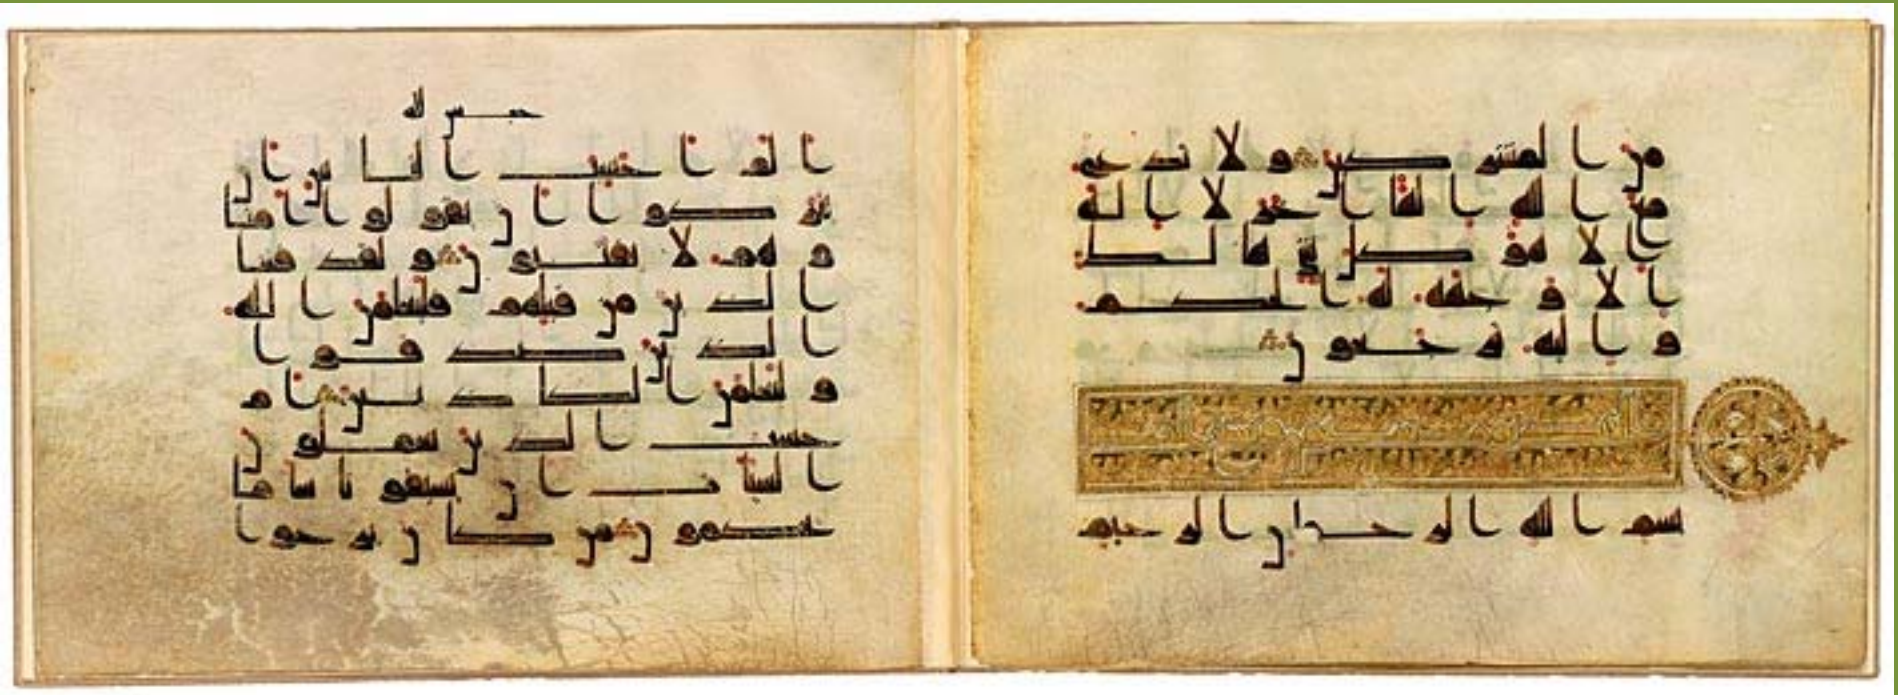 من المشركين ولا تدع
مع الله الها اخر لا اله
الا هو كل شي هالك
الا وجهه له الحكم
واليه ترجعون
بسم الله الرحمن الرحيم
حبس لله
الم احسب الناس ان
يتركوا ان يقولوا امنا
وهم لا يفتنون ولقد فتنا
الذين من قبلهم فليعلمن الله
الذين صدقوا
وليعلمن الكذبين ام
حسب الذين يعملون
السيات ان يسبقونا سا ما
يحكمون من كان يرجوا